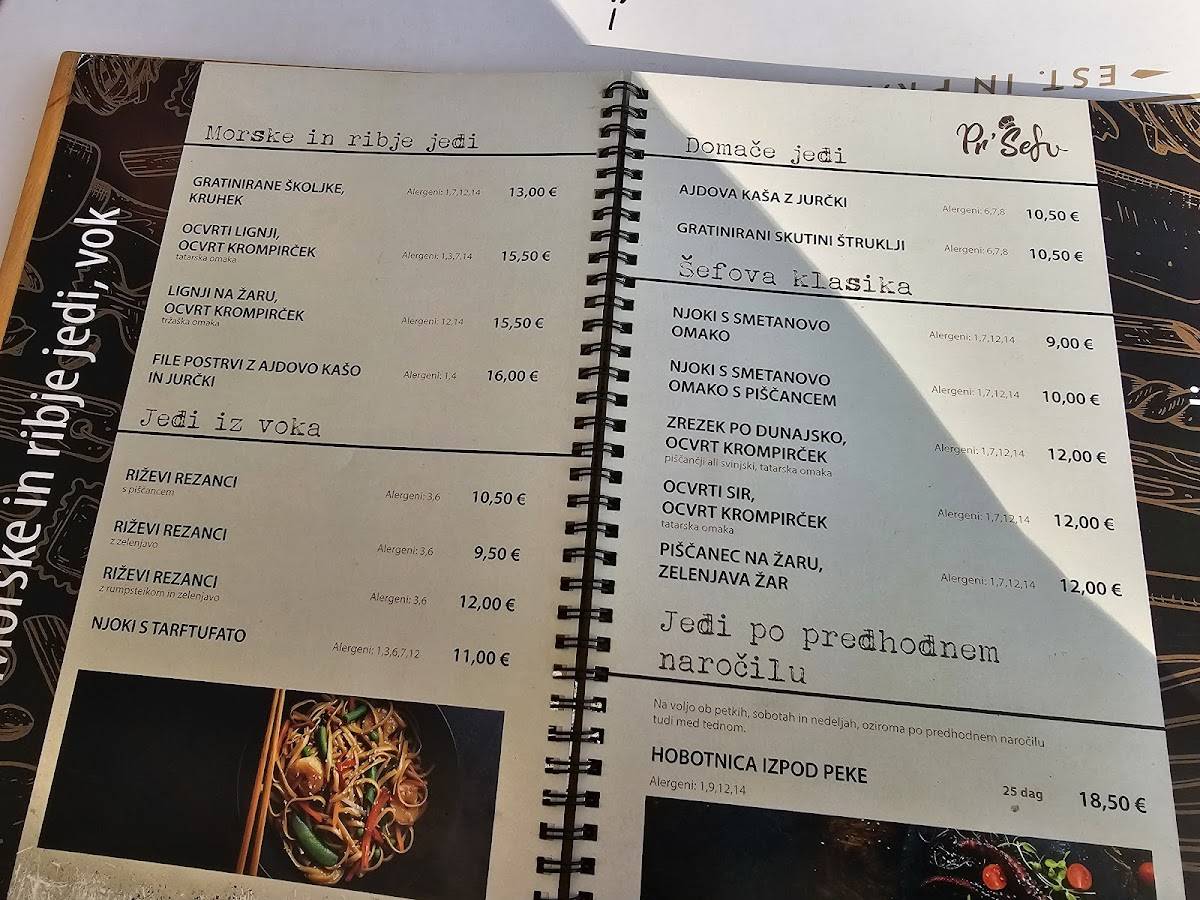 EST. IN PR
Morske in ribje jedi, vok
Morske in ribje jedi
GRATINIRANE ŠKOLJKE,
KRUHEK
Alergeni: 1,7,12,14 13,00 €
OCVRTI LIGNJI,
OCVRT KROMPIRČEK
tatarska omaka
Alergeni: 1,3,7,14 15,50 €
LIGNJI NA ŽARU,
OCVRT KROMPIRČEK
tržaška omaka
Alergeni: 12,14 15,50 €
FILE POSTRVI Z AJDOVO KAŠO
IN JURČKI
Alergeni: 1,4 16,00 €
Jedi iz voka
RIŽEVI REZANCI
s piščancem
Alergeni: 3,6 10,50 €
RIŽEVI REZANCI
z zelenjavo
Alergeni: 3,6 9,50 €
RIŽEVI REZANCI
z rumpsteikom in zelenjavo
Alergeni: 3,6 12,00 €
NJOKI S TARFTUFATO
Alergeni: 1,3,6,7,12 11,00 €
Pr'Šefu
Domače jedi
AJDOVA KAŠA Z JURČKI
Alergeni: 6,7,8 10,50 €
GRATINIRANI SKUTINI ŠTRUKLJI
Alergeni: 6,7,8 10,50 €
Šefova klasika
NJOKI S SMETANOVO
OMAKO
Alergeni: 1,7,12,14 9,00 €
NJOKI S SMETANOVO
OMAKO S PIŠČANCEM
Alergeni: 1,7,12,14 10,00 €
ZREZEK PO DUNAJSKO,
OCVRT KROMPIRČEK
piščančji ali svinjski, tatarska omaka
Alergeni: 1,7,12,14 12,00 €
OCVRTI SIR,
OCVRT KROMPIRČEK
tatarska omaka
Alergeni: 1,7,12,14 12,00 €
PIŠČANEC NA ŽARU,
ZELENJAVA ŽAR
Alergeni: 1,7,12,14 12,00 €
Jedi po predhodnem
naročilu
Na voljo ob petkih, sobotah in nedeljah, oziroma po predhodnem naročilu
tudi med tednom.
HOBOTNICA IZPOD PEKE
Alergeni: 1,9,12,14
25 dag 18,50 €